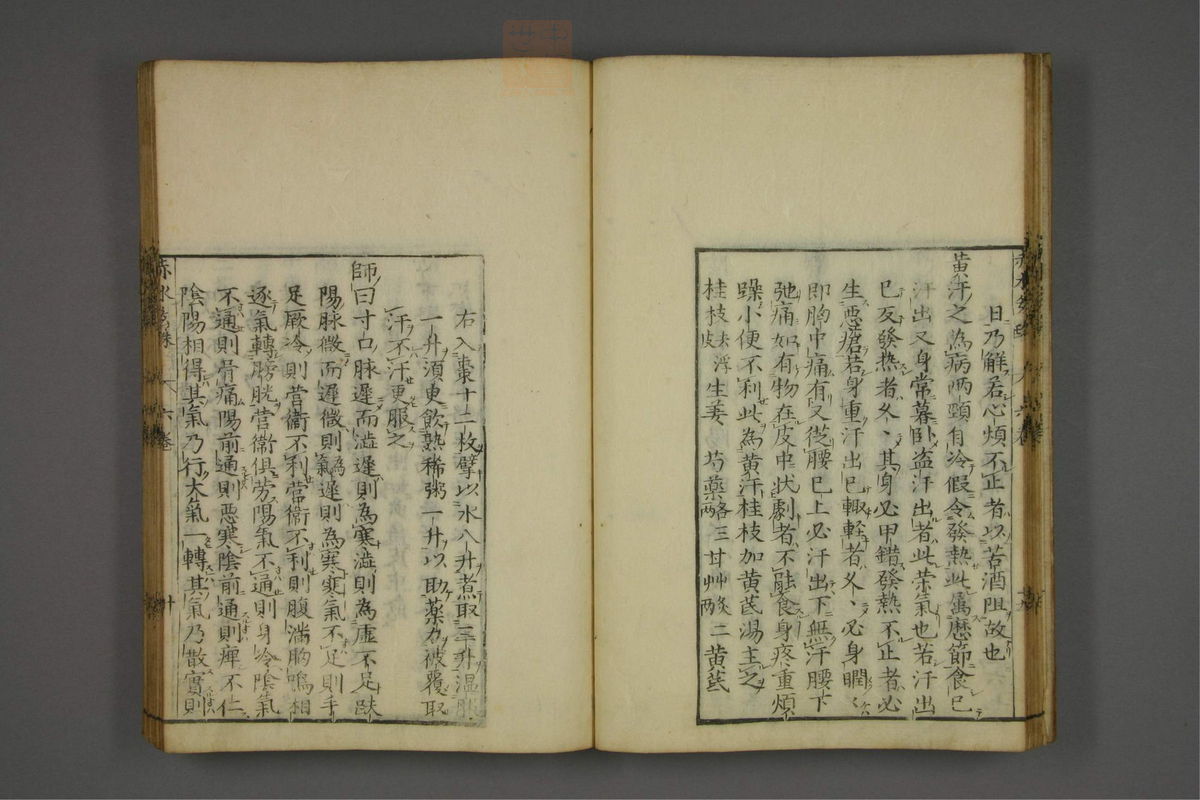 日乃解若心煩不止者以苦酒阻故也
黃汗之為病两頸自冷假令發熱此属歷節食已
汗出又身常暮卧盗汗出者此荣氣也若汗出
已反發熱者久久其身必甲錯發熱不止者必
生惡瘡若身重汗出已輙軽者久久必身瞤
即胸中痛有又從腰已上必汗出下無汗腰下
弛痛如有物在皮中状劇者不能食身疼重煩
躁小便不利此為黄汗桂枝加黄芪湯主之
桂枝去浮皮 生姜 芍薬各三两 甘艸炙二两 黄芪
右入棗十二枚擘以水八升煮取三升温服
一升須更飲熱稀粥一升以助薬力被覆取
汗不汗更服之
師曰寸口脉遲而澁遲則為寒澁則為虚不足趺
陽脉微而遲微則為氣遲則為寒寒氣不足則手
足厥冷則营衞不利营衞不利則腹滿胸鳴相
逐氣轉膀胱营衞俱劳陽氣不通則身冷陰氣
不通則骨痛陽前通則悪寒陰前通則痺不仁
陰陽相得其氣乃行大氣一轉其氣乃散實則